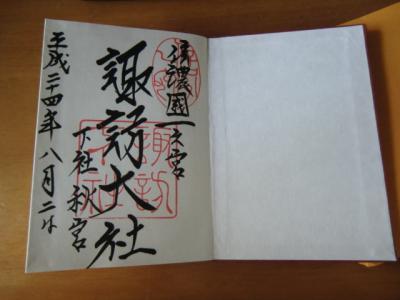 信濃國一之宮
諏訪大社
下社秋宮
平成二十四年八月二